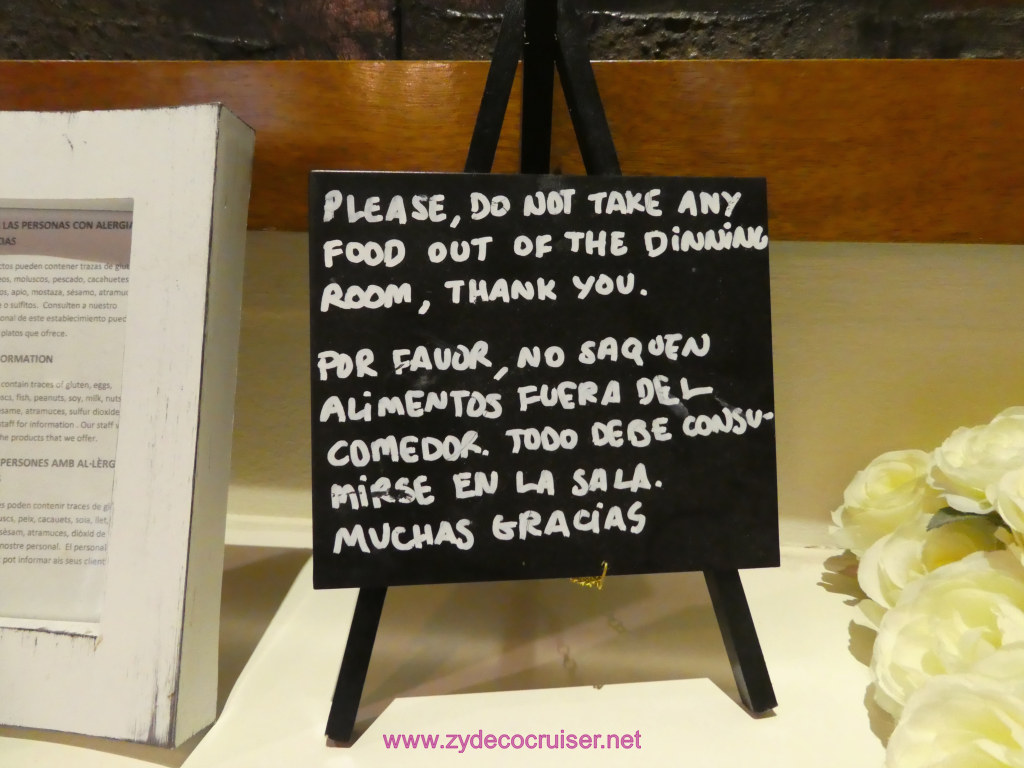 LAS PERSONAS CON ALERGIA
CIAS
pueden contener trazas de
moluscos, pescado, cacahuetes
apio, mostaza, sésamo,
o sulfitos. Consulten a nuestro
de este establecimiento
platos que ofrece.
contain traces of gluten, eggs,
fish, peanuts, soy, milk, nuts
atramuces, sulfur dioxide
for information . Our staff
the products that we offer.
PERSONES AMB
poden contenir traces de
peix, cacauets, soia, llet
sèsam, atramuces, diòxid de
nostre personal. El personal
pot informar als seus client
PLEASE, DO NOT TAKE ANY
FOOD OUT OF THE DINNING
ROOM, THANK YOU.
POR FAVOR, NO SAQUEN
ALIMENTOS FUERA DEL
COMEDOR. TODO DEBE CONSU-
MIRSE EN LA SALA.
MUCHAS GRACIAS
www.zydecocruiser.net